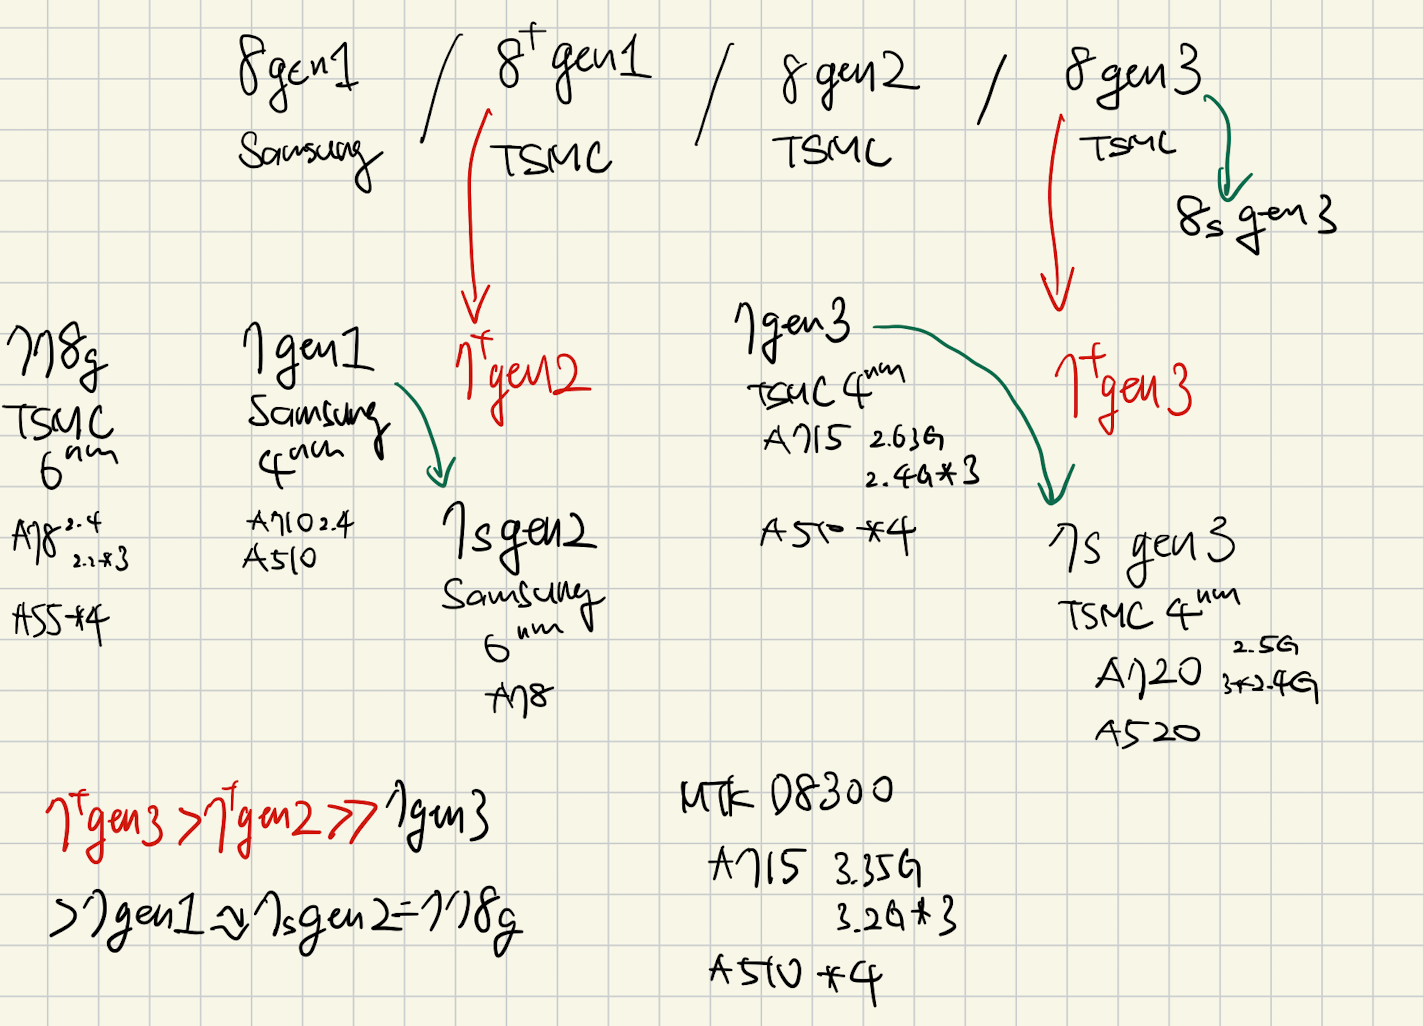 8gen1 / 8+gen1 / 8gen2 / 8gen3
Samsung TSMC TSMC TSMC
8s gen3
778g
TSMC
6nm
A78 2.4
2.2*3
A55*4
7gen1
Samsung
4nm
A710 2.4
A510
7+gen2
7sgen2
Samsung
6nm
A78
7gen3
TSMC 4nm
A715 2.63G
2.4G*3
A510*4
7+gen3
7s gen3
TSMC 4nm
A720 2.5G
3*2.4G
A520
7+gen3>7+gen2>>7gen3
>7gen1≈7sgen2=778g
MTK D8300
A715 3.35G
3.2G*3
A510*4